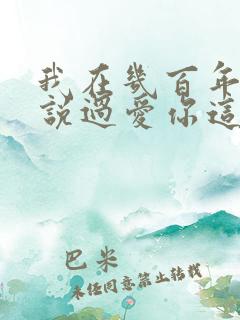 我在幾百年
說過愛你這
巴米
未經同意禁止轉載